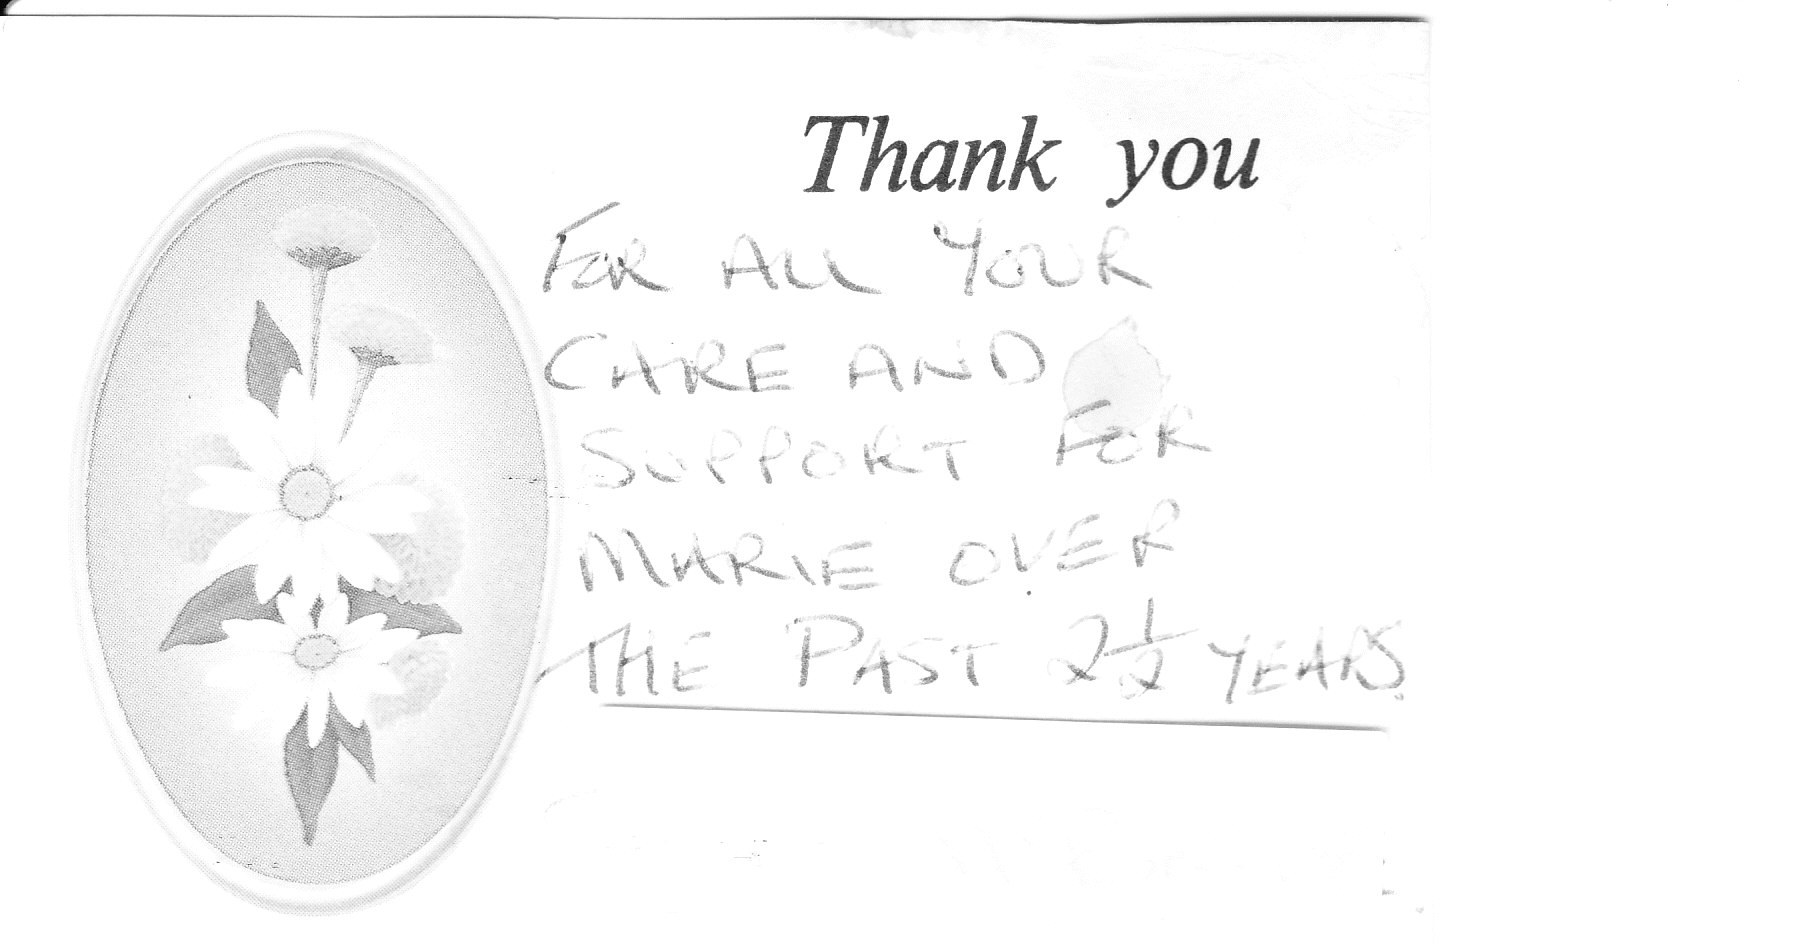 Thank you
FOR ALL YOUR
CARE AND
SUPPORT FOR
MARIE OVER
THE PAST 2½ YEARS.